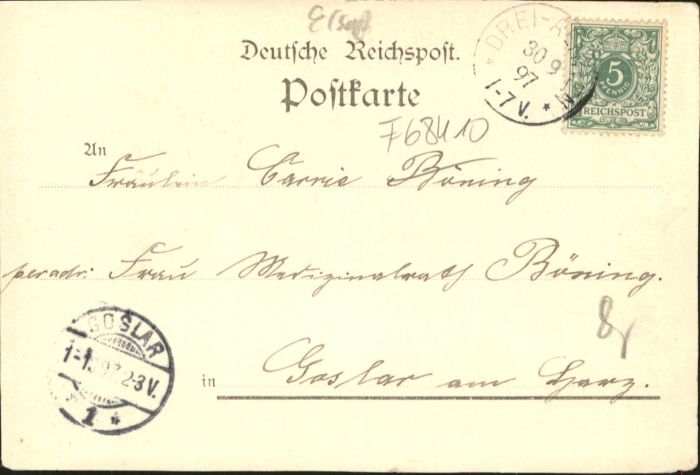 Elsaß
Deutsche Reichspost.
Postkarte
DREI-
30 9
97
1-7 V.
5
PFENNIG
REICHSPOST
F68410
An
Fräulein Carrie Böning
per adr. Frau Medizinalrath Böning.
GOSLAR
2-3 V.
1
in Goslar am Harz.